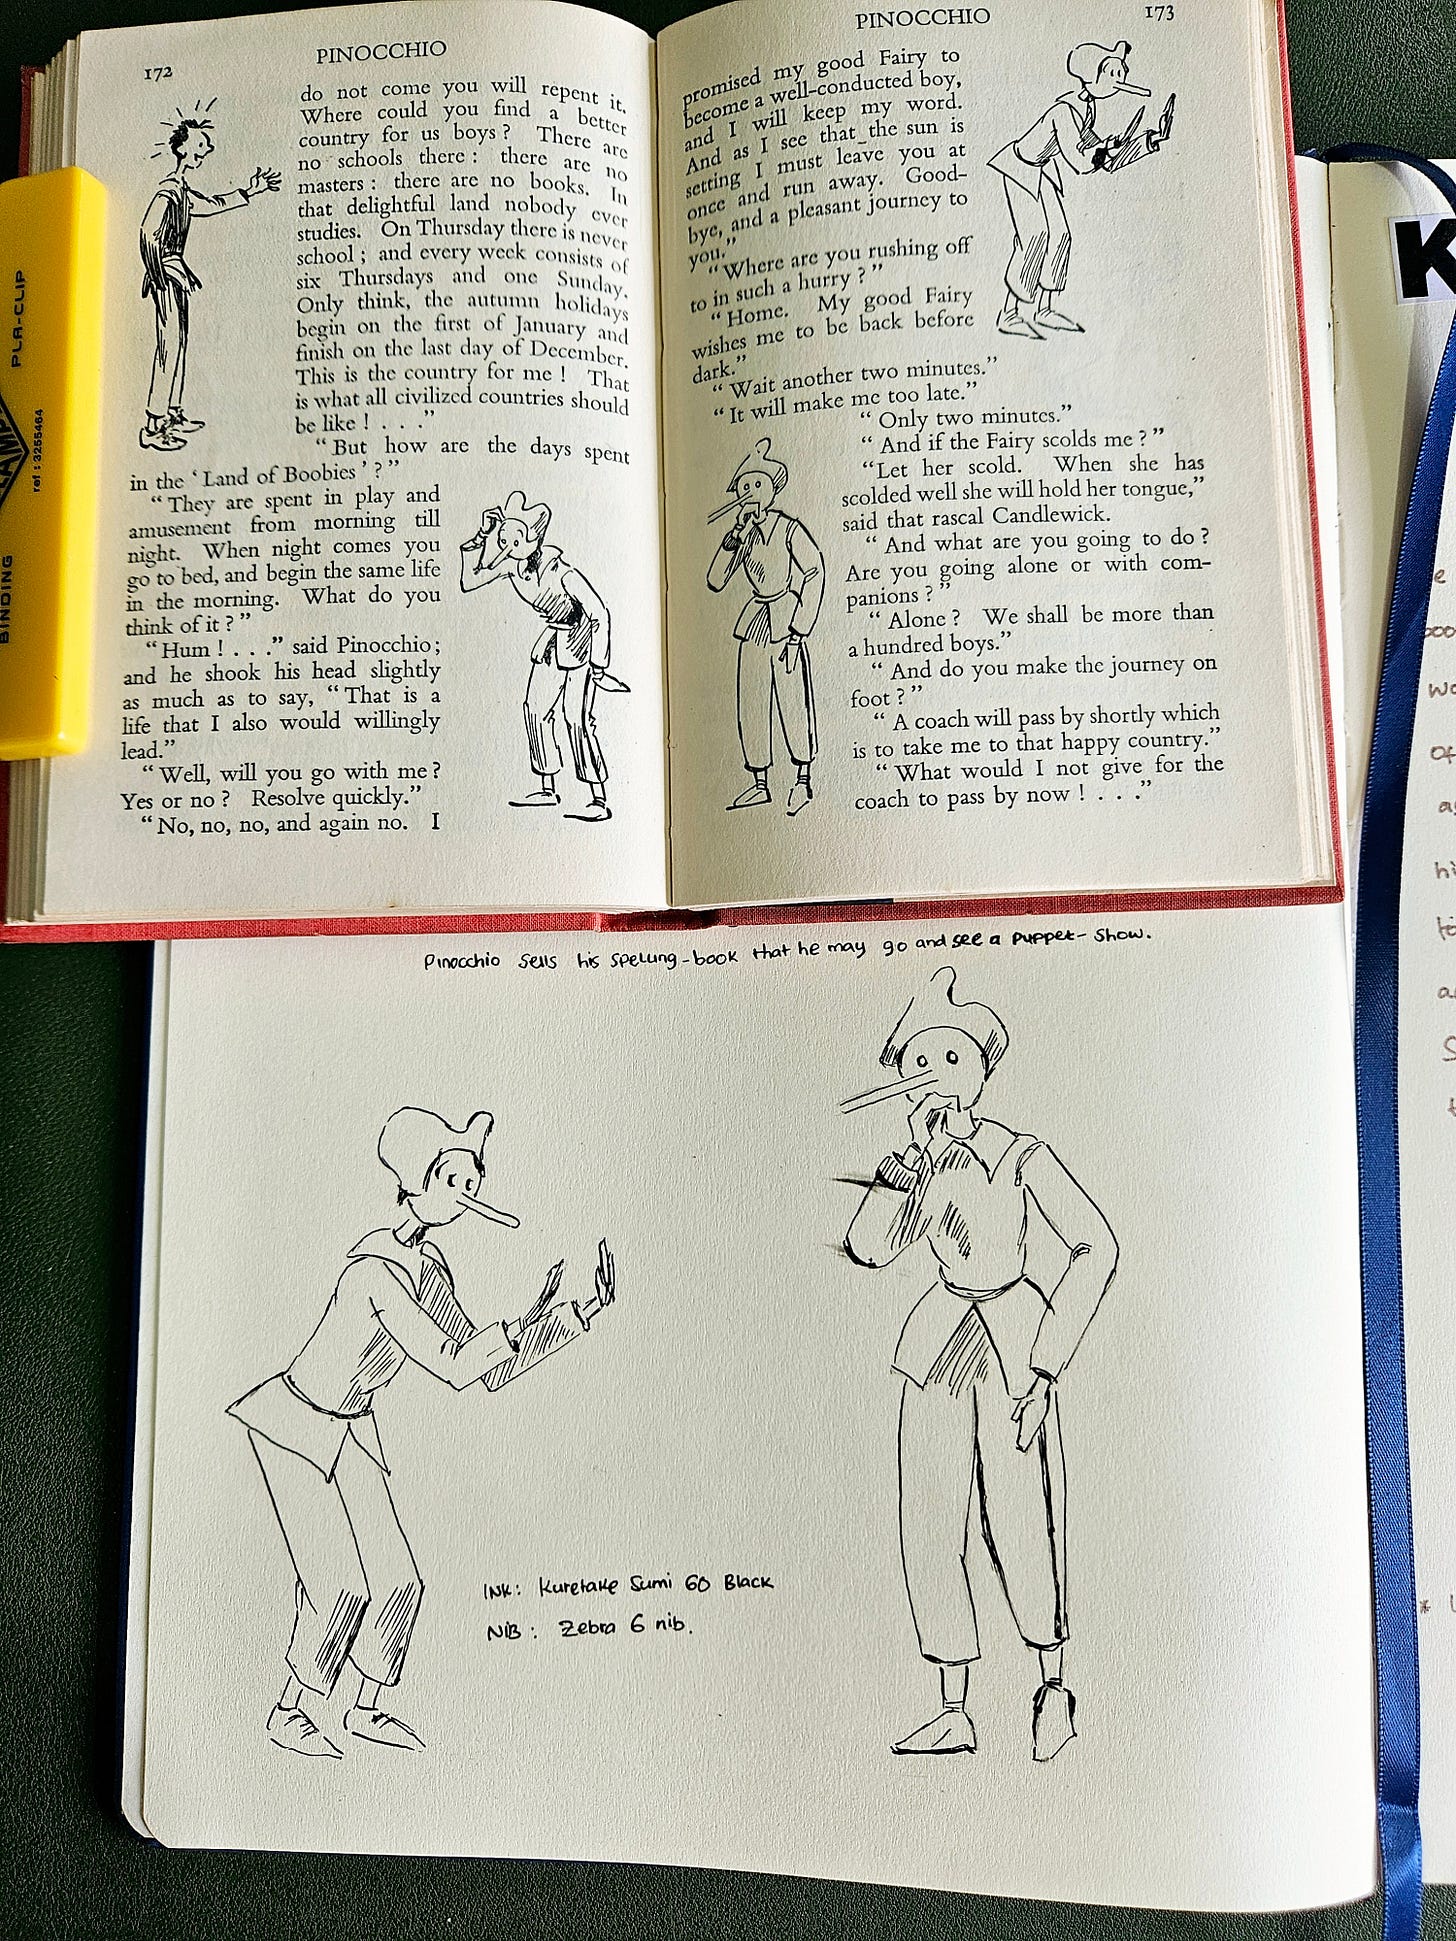 PINOCCHIO
172
do not come you will repent it.
Where could you find a better
country for us boys? There are
no schools there: there are no
masters: there are no books. In
that delightful land nobody ever
studies. On Thursday there is never
school; and every week consists of
six Thursdays and one Sunday.
Only think, the autumn holidays
begin on the first of January and
finish on the last day of December.
This is the country for me! That
is what all civilized countries should
be like! . . .”
“But how are the days spent
in the ‘Land of Boobies’?”
“They are spent in play and
amusement from morning till
night. When night comes you
go to bed, and begin the same life
in the morning. What do you
think of it?”
“Hum! . . .” said Pinocchio;
and he shook his head slightly
as much as to say, “That is a
life that I also would willingly
lead.”
“Well, will you go with me?
Yes or no? Resolve quickly.”
“No, no, no, and again no. I
PINOCCHIO
173
promised my good Fairy to
become a well-conducted boy,
and I will keep my word.
And as I see that the sun is
setting I must leave you at
once and run away. Good-
bye, and a pleasant journey to
you.”
“Where are you rushing off
to in such a hurry?”
“Home. My good Fairy
wishes me to be back before
dark.”
“Wait another two minutes.”
“It will make me too late.”
“Only two minutes.”
“And if the Fairy scolds me?”
“Let her scold. When she has
scolded well she will hold her tongue,”
said that rascal Candlewick.
“And what are you going to do?
Are you going alone or with com-
panions?”
“Alone? We shall be more than
a hundred boys.”
“And do you make the journey on
foot?”
“A coach will pass by shortly which
is to take me to that happy country.”
“What would I not give for the
coach to pass by now! . . .”
PLA-CLIP
ref: 3255464
BINDING
K
Pinocchio sells his spelling-book that he may go and see a puppet-show.
INK: Kuretake Sumi 60 Black
NIB: Zebra G nib.